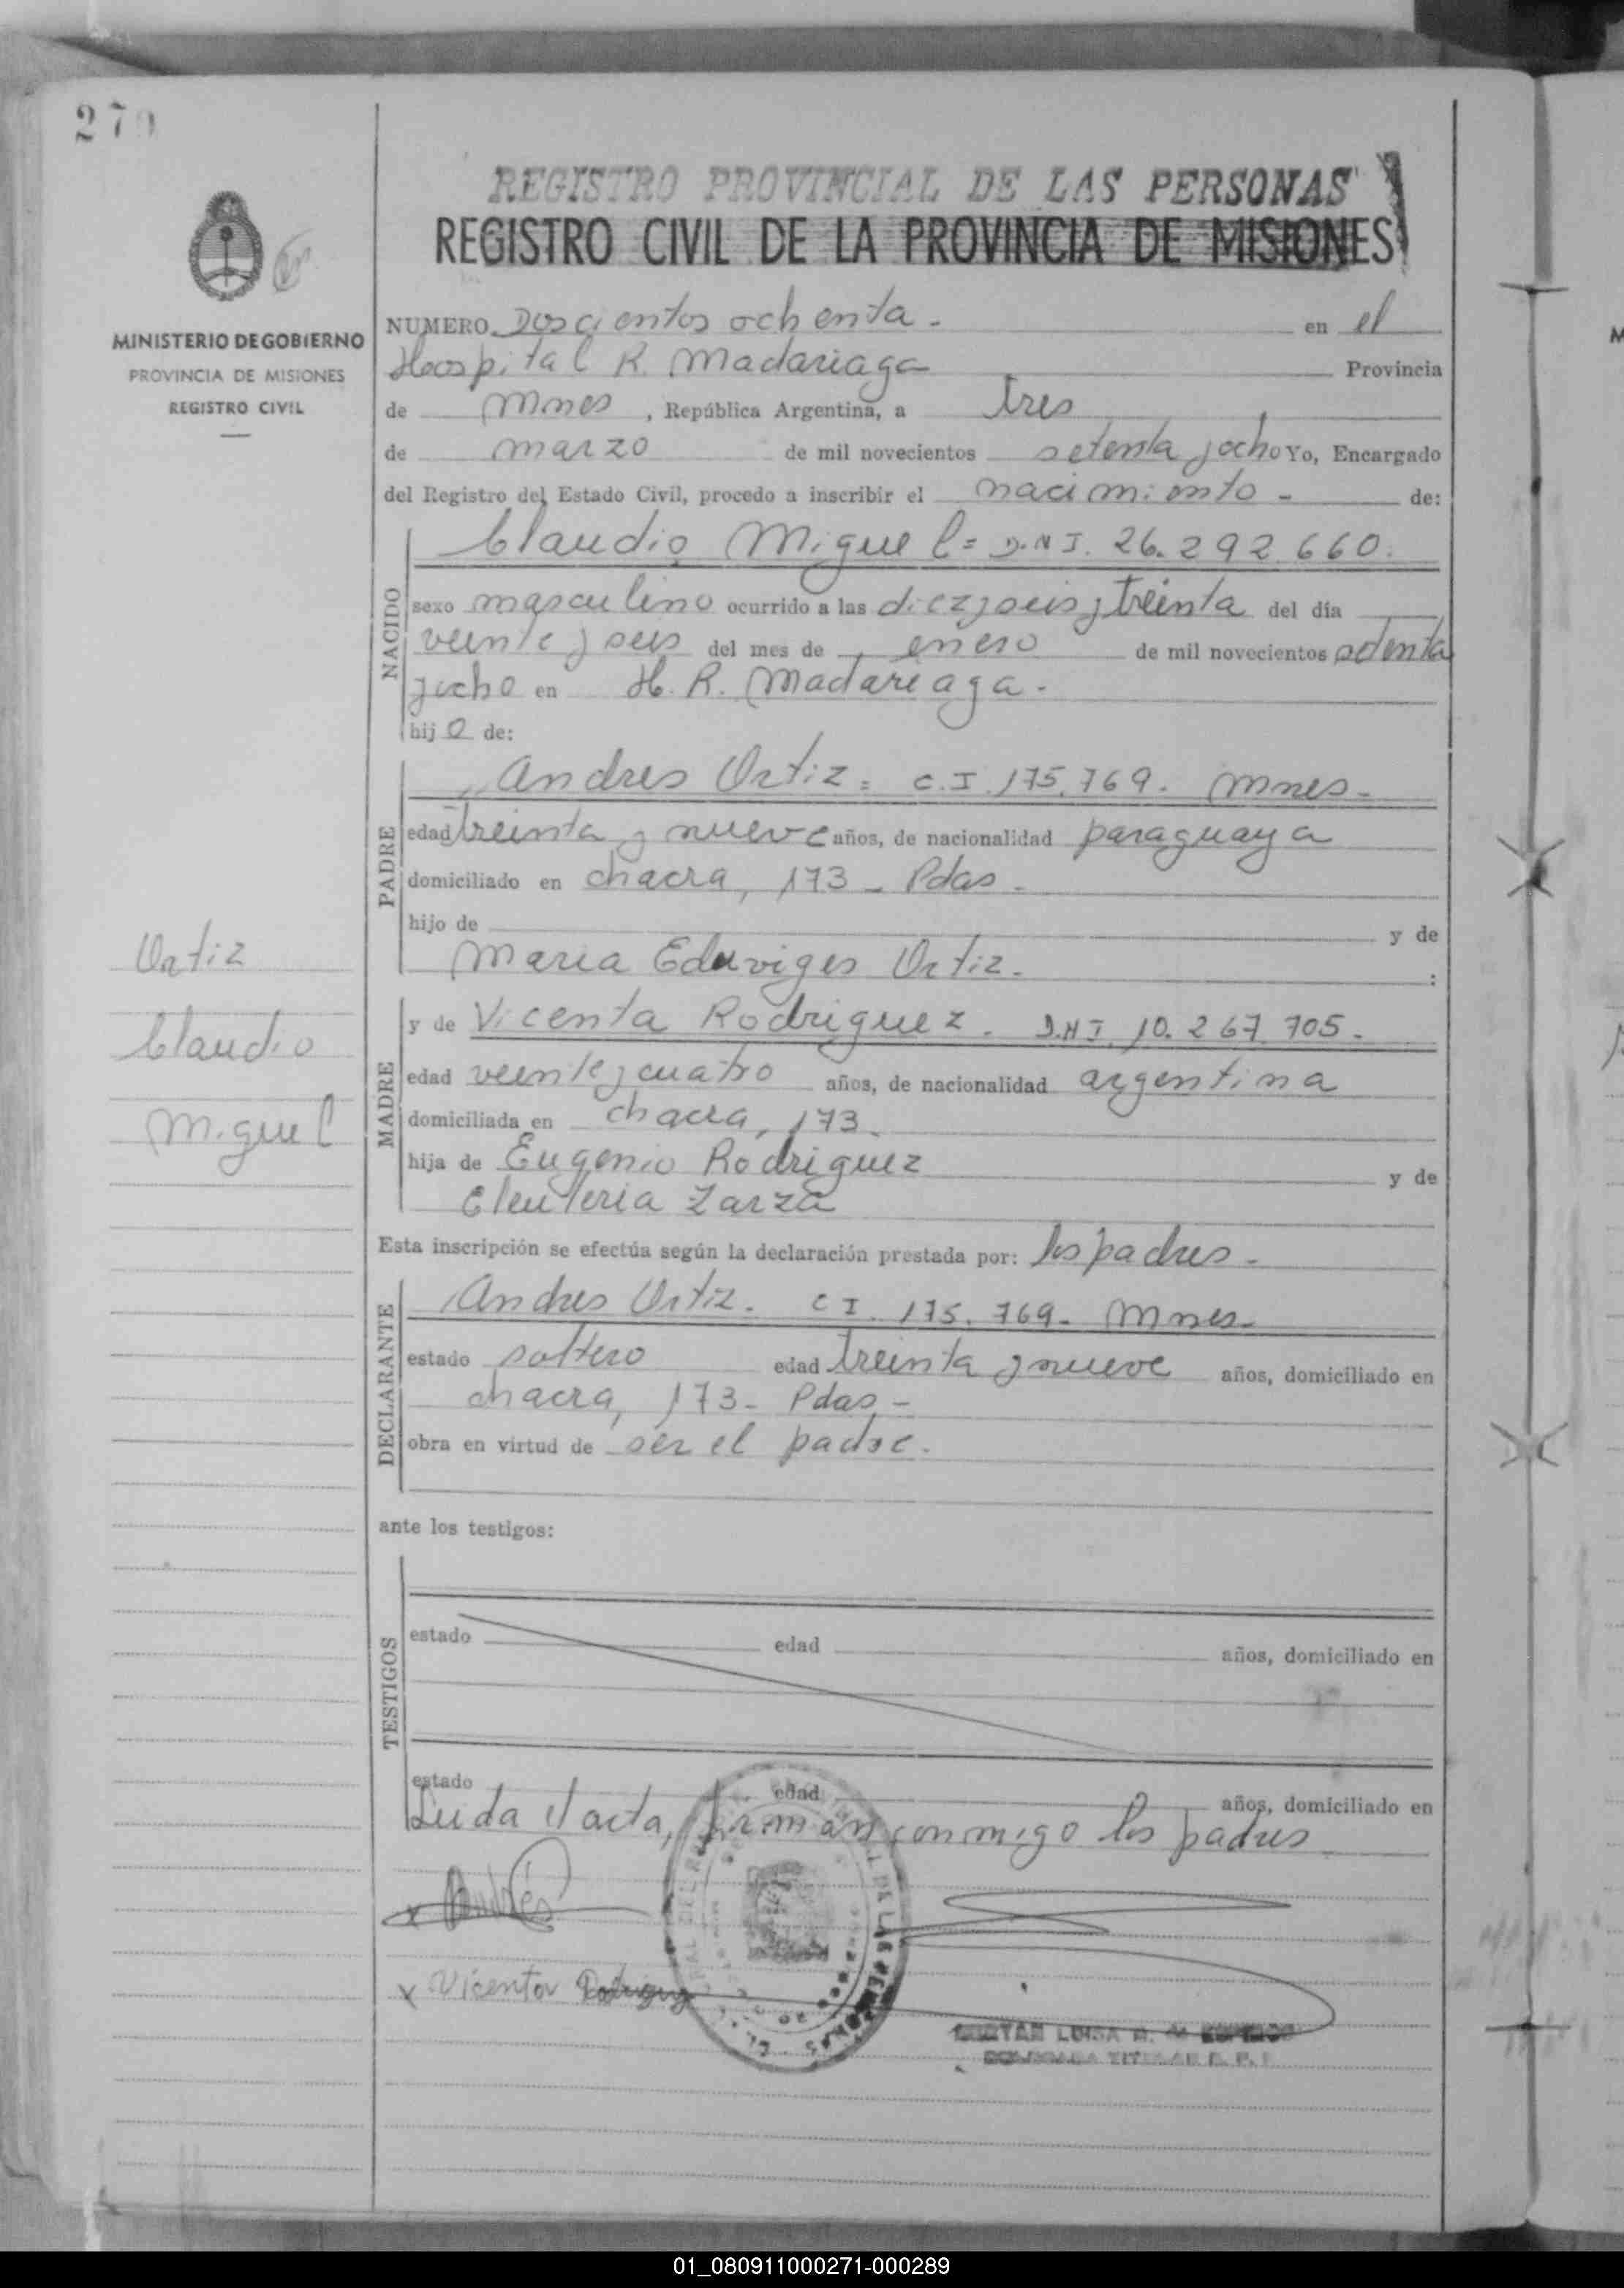 270
REGISTRO PROVINCIAL DE LAS PERSONAS
REGISTRO CIVIL DE LA PROVINCIA DE MISIONES
MINISTERIO DE GOBIERNO
PROVINCIA DE MISIONES
REGISTRO CIVIL
NUMERO Doscientos ochenta - en el
Hospital R. Madariaga Provincia
de Mnes, República Argentina, a tres
de marzo de mil novecientos setenta y ocho Yo, Encargado
del Registro del Estado Civil, procedo a inscribir el nacimiento - de:
NACIDO
Claudio Miguel = D.N.I. 26.292.660.
sexo masculino ocurrido a las diez y seis y treinta del día
veinte y seis del mes de enero de mil novecientos setenta
y ocho en H. R. Madariaga.
hijo de:
PADRE
Andres Ortiz = C.I. 175.769. Mnes-
edad treinta y nueve años, de nacionalidad paraguaya
domiciliado en chacra, 173 - Pdas -
hijo de y de
Maria Eduviges Ortiz. :
MADRE
y de Vicenta Rodriguez. D.N.I. 10.267.705.
edad veinte y cuatro años, de nacionalidad argentina
domiciliada en chacra, 173.
hija de Eugenio Rodriguez y de
Eleuteria Zarza
Ortiz
Claudio
Miguel
Esta inscripción se efectúa según la declaración prestada por: los padres -
DECLARANTE
Andres Ortiz. C I. 175.769- Mnes-
estado soltero edad treinta y nueve años, domiciliado en
chacra, 173- Pdas,-
obra en virtud de ser el padre.
ante los testigos:
TESTIGOS
estado edad años, domiciliado en
estado edad años, domiciliado en
Leida el acta, firman conmigo los padres
x Andrés
x Vicenta Rodriguez
LUISA
01_080911000271-000289